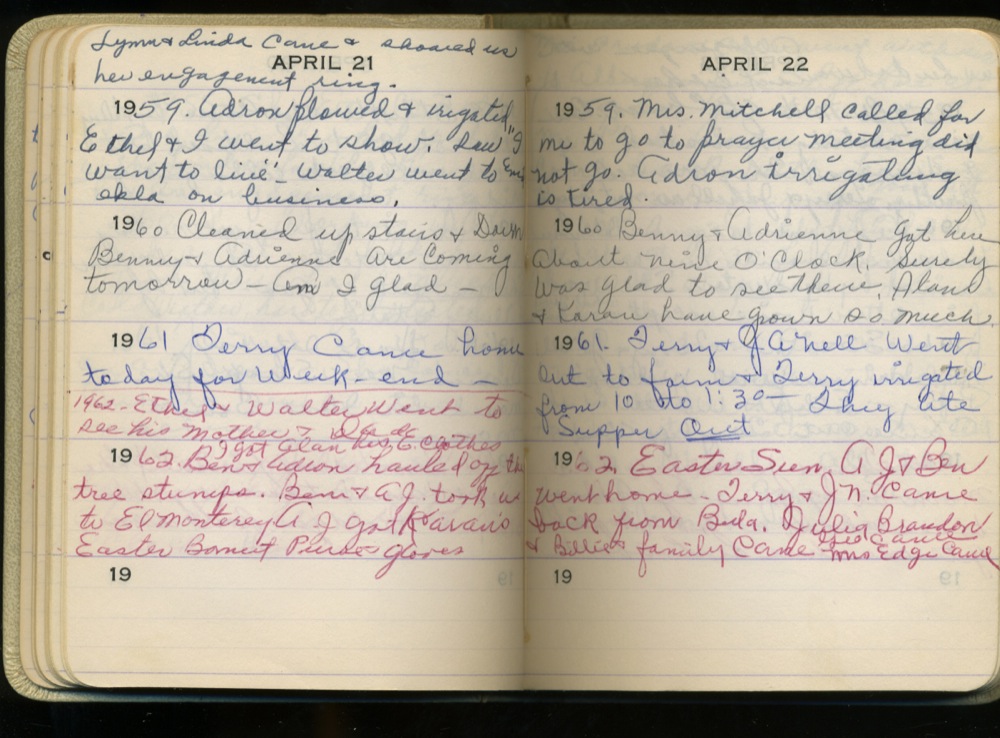 Lynn & Linda Came & showed us
APRIL 21
her engagement ring.
1959. Adron plowed & irigated
Ethel & I went to show. Saw "I
want to live" - Walter went to
okla on business.
1960 Cleaned up stairs & Down
Benny & Adrienne are Coming
tomorrow - Am I glad -
1961 Terry Came home
today for Week-end -
1962 - Ethel & Walter Went to
see his Mother & Dad
I got Alan his E. clothes
1962. Ben & Adron hauled off the
tree stumps. Ben & A J. took us
to El Monterey A J got Karan's
Easter Bonnet Purse & gloves
19
APRIL 22
1959. Mrs. Mitchell called for
me to go to prayer meeting did
not go. Adron Irrigateing
is tired.
1960 Benny & Adrienne got here
about nine O'Clock. Surely
was glad to see them. Alan
& Karan have grown so much.
1961. Terry & JA'Nell Went
out to farm & Terry irrigated
from 10 to 1:30 - They ate
Supper Out
1962. Easter Sun. A J & Ben
went home - Terry & J N. Came
back from Bula. Julia Brandon
& Billie & family Came -
Mrs Edge Came
19